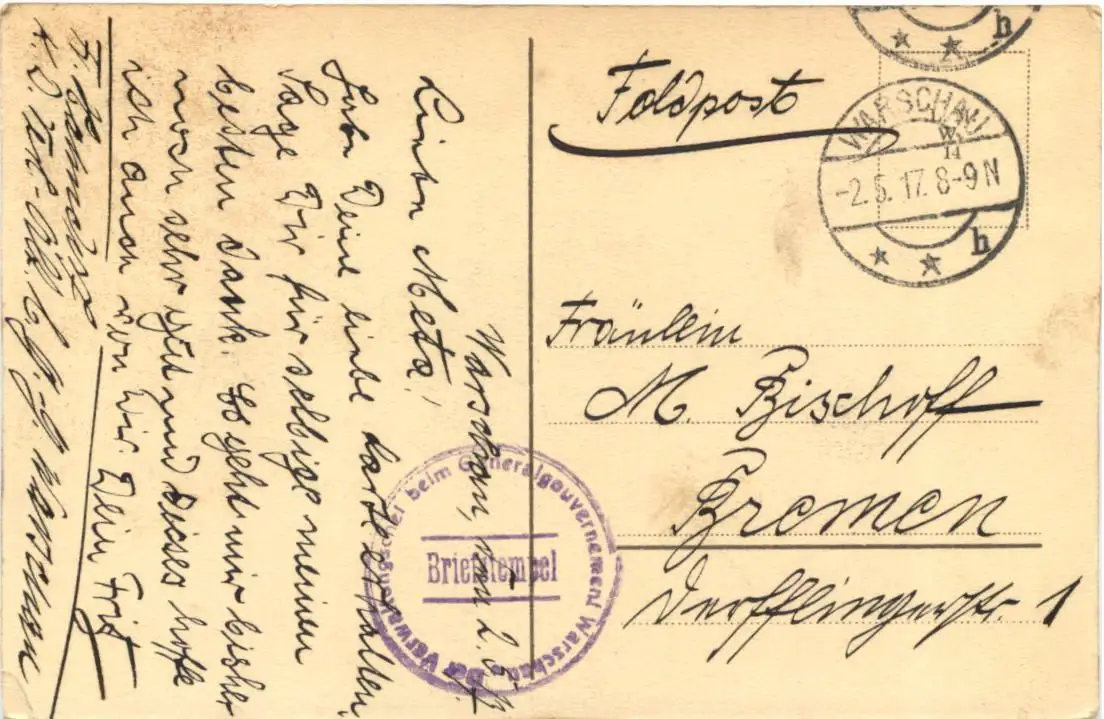 Warschau, den 2.5.17.
Liebe Meta,
Habe Deine liebe Karte erhalten,
sage Dir für selbige meinen
besten Dank. Es geht mir bisher
noch sehr gut und dieses hoffe
ich auch von Dir. Dein Fritz
Feldpost
WARSCHAU
-2.5.17. 8-9N
h
h
Fräulein
M. Bischoff
Bremen
Derfflingerstr. 1
Briefstempel
beim Generalgouvernement Warschau